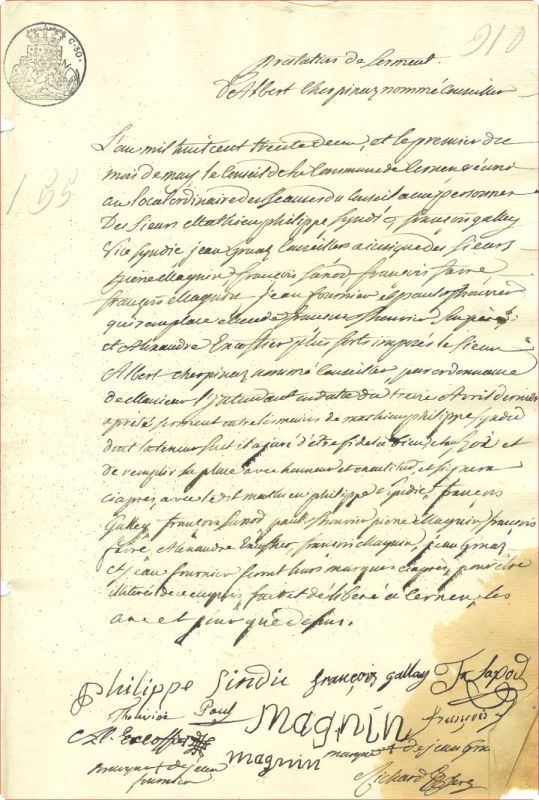 C. 50.
910
Prestation de Serment
D'Albert Cherpinaz nommé Conseiller
155
L'an mil huit cent trente deux, et le premier du
mois de may le Conseil de la Commune de Cernex réuni
au local ordinaire des seances du Conseil aux personnes
Des Sieurs Mathieu philippe Syndic françois gallay
Vice Syndic jean Conseiller ainsi que des Sieurs
pierre Magnin françois Sapod françois favre
françois Magnin jean fournier et paul thouvier
qui remplace thouvier Son père
et Alexandre plus forts imposés le Sieur
Albert cherpinaz nommé Conseiller par ordonnance
de Monsieur l'Intendant en date du treize Avril dernier
a prêté serment entre les mains de mathieu philippe Syndic
dont la teneur suit il a juré d'être fidel a Dieu et au Roi et
de remplir sa place avec honneur et exactitude, et signera
ciaprès avec le dit mathieu philippe Syndic, françois
Gallay françois Sapod, paul thouvier pierre Magnin françois
favre Alexandre françois Magnin, jean
et jean fournier feront leurs marques ciaprès pour être
illiterés de ce enquis, fait et délibéré à Cernex, les
an et jour que dessus.
philippe Sindic françois gallay fr Sapod
Thouvier Paul Magnin françois
magnin marque + de jean
marque + de jean
fournier
Richard